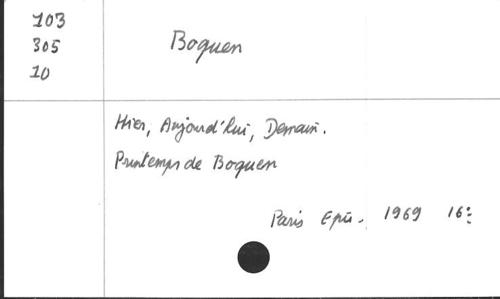 103
305
10
Boquen
Hier, Aujourd'hui, Demain.
Printemps de Boquen
Paris Epi. 1969 16: